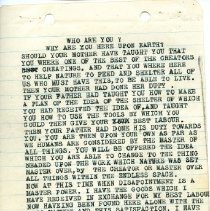 WHO ARE YOU ?
WHY ARE YOU HERE UPON EARTH?
SHOULD YOUR MOTHER HAVE TAUGHT YOU THAT
YOU WHERE ONE OF THE BEST OF THE CREATORS
GREETINGS, AND THAT YOU WHERE HERE
TO HELP NATURE TO FEED AND SHELTER ALL OF
US WHO MUST HAVE THIS, TO BE ABLE TO LIVE.
THEN YOUR MOTHER HAD DONE HER DUTY .
IF YOUR FATHER HAD TAUGHT YOU HOW TO MAKE
A PLAN OF THE IDEA OF THE SHELTER OF WHICH
YOU HAD RECEIVED THE IDEA OF, AND TAUGHT
YOU HOW TO USE THE TOOLS BY WHICH YOU
COULD THEN GIVE YOUR BEST LABOR
THEN YOUR FATHER HAD DONE HIS DUTY TOWARDS
YOU. YOU ARE THEN UPON YOUR OWN AS FAR AS
WE HUMANS ARE CONSIDERED BY THE MASTER OF
ALL THINGS. YOU WILL BE OFFERED THE IDEA
WHICH YOU ARE ABLE TO CHANGE TO THE THING
NEEDED UPON THE WORLD WHICH NATURE WAS SET
MASTER OVER, by THE CREATOR OR MASTER OVER
ALL THINGS WITHIN THE ENDLESS SPACE.
NOW AT THIS TIME WHEN DISAPPOINTED IN A
MASTER POWER, I HAVE THE GOODS WHICH I
HAVE RECEIVED IN EXCHANGE FOR MY BEST LABOUR
NOW HAVING BEEN FOUND HERE ALONE WITH THE
AND THIS SATISFACTION, I HAVE